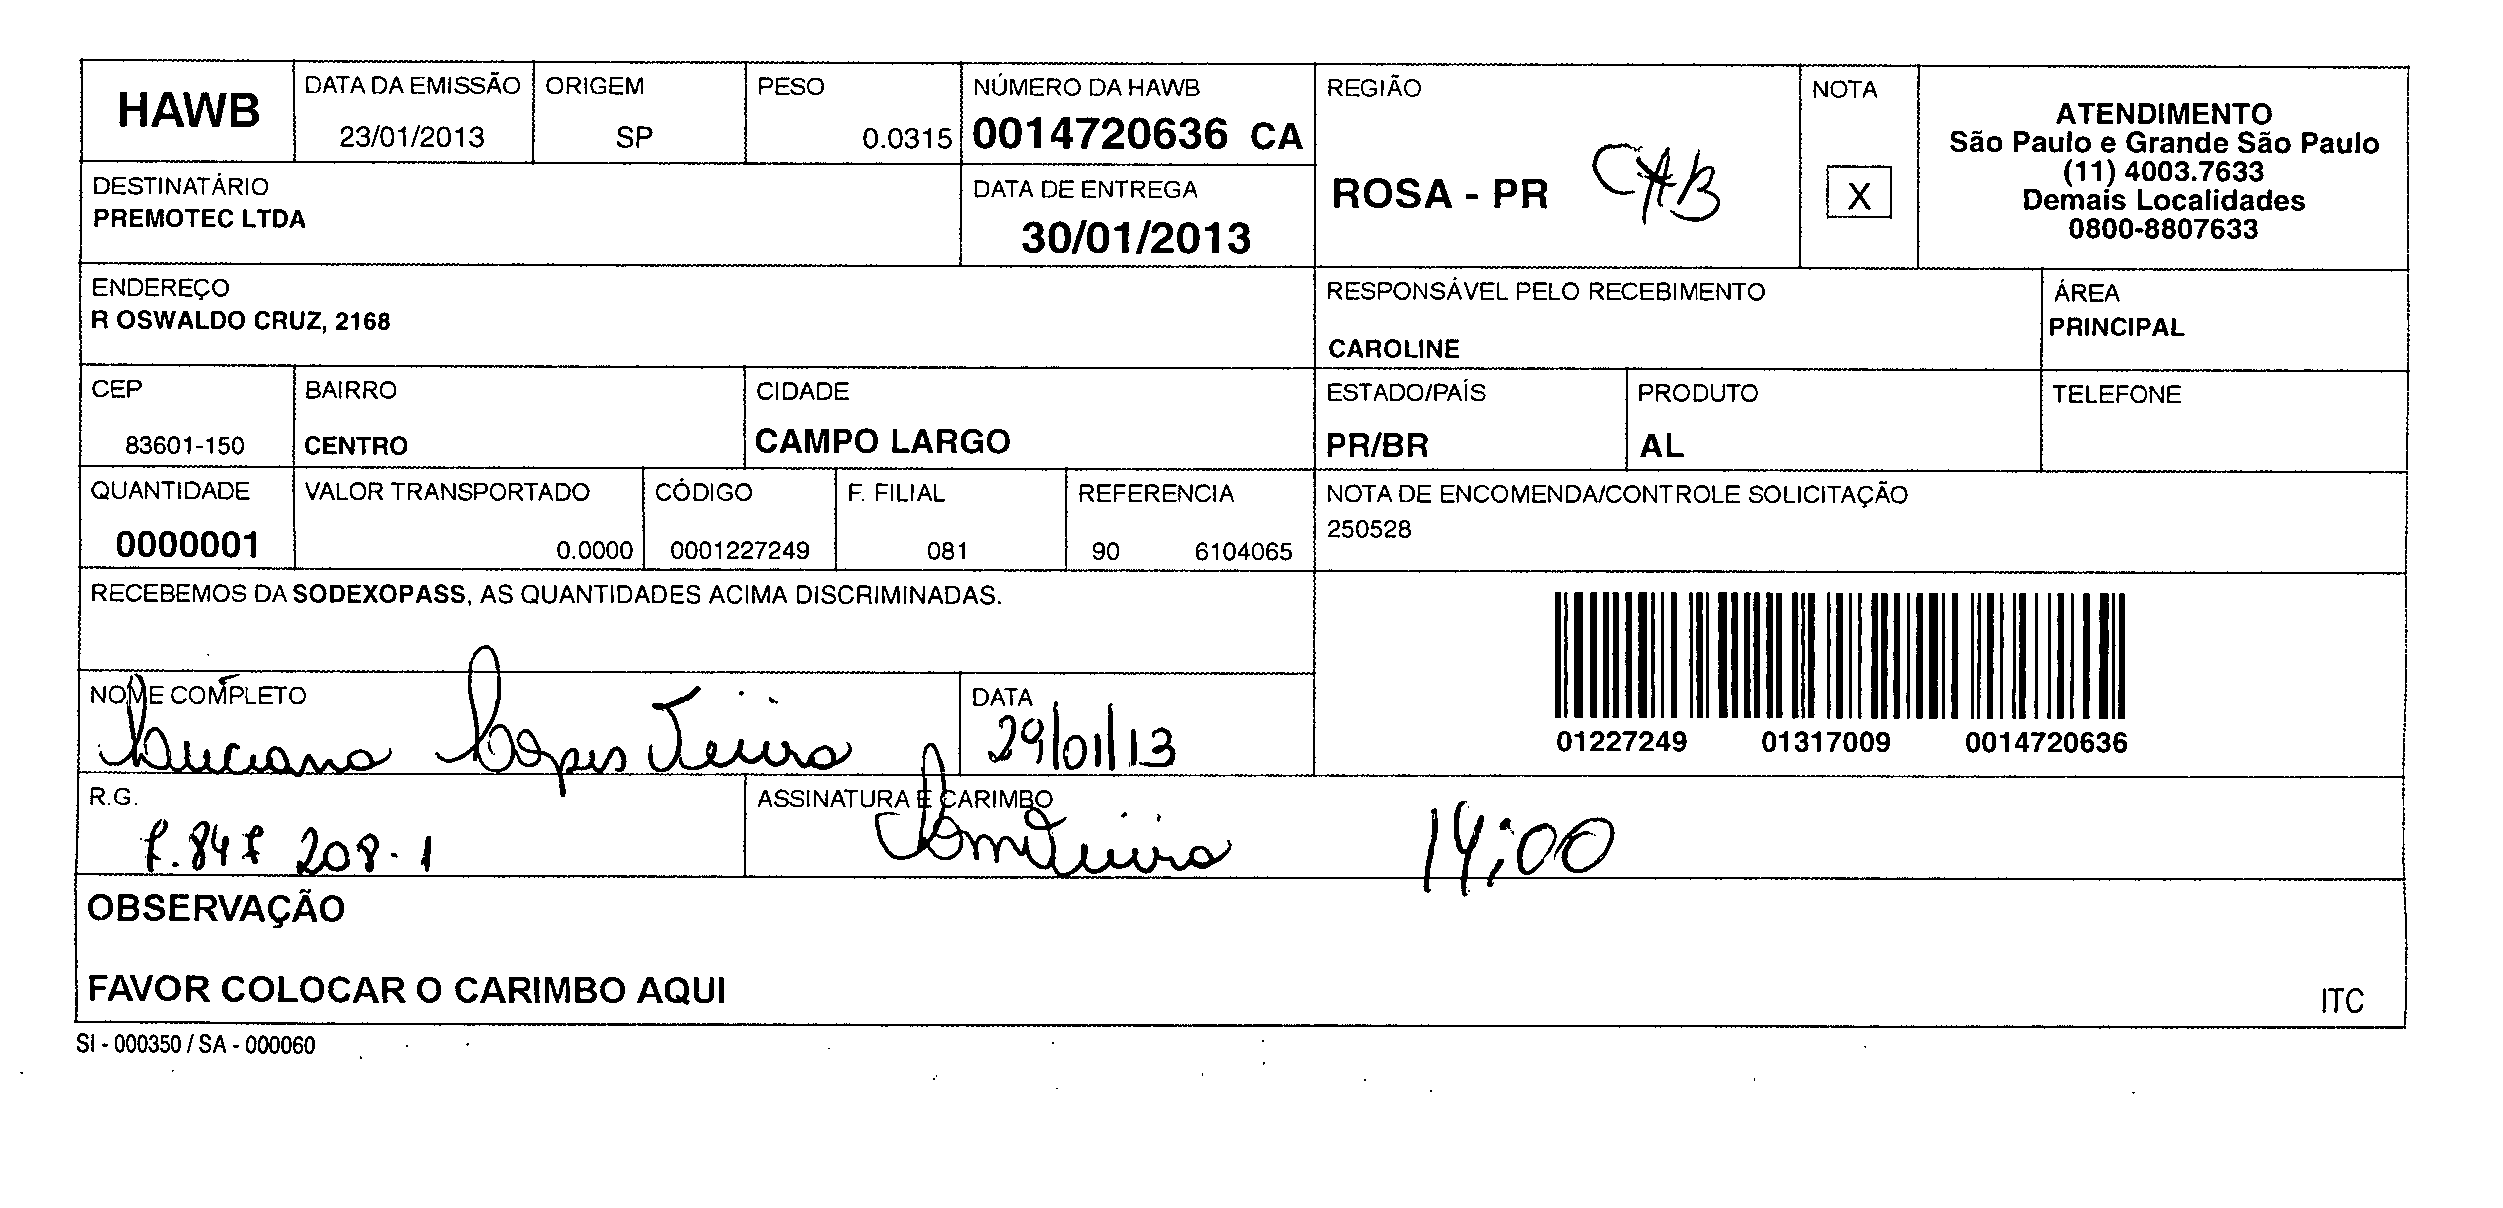 HAWB
DATA DA EMISSÃO
23/01/2013
ORIGEM
SP
PESO
0.0315
NÚMERO DA HAWB
0014720636 CA
REGIÃO
ROSA - PR
CAB
NOTA
X
ATENDIMENTO
São Paulo e Grande São Paulo
(11) 4003.7633
Demais Localidades
0800-8807633
DESTINATÁRIO
PREMOTEC LTDA
DATA DE ENTREGA
30/01/2013
ENDEREÇO
R OSWALDO CRUZ, 2168
RESPONSÁVEL PELO RECEBIMENTO
CAROLINE
ÁREA
PRINCIPAL
CEP
83601-150
BAIRRO
CENTRO
CIDADE
CAMPO LARGO
ESTADO/PAÍS
PR/BR
PRODUTO
AL
TELEFONE
QUANTIDADE
0000001
VALOR TRANSPORTADO
0.0000
CÓDIGO
0001227249
F. FILIAL
081
REFERENCIA
90 6104065
NOTA DE ENCOMENDA/CONTROLE SOLICITAÇÃO
250528
RECEBEMOS DA SODEXOPASS, AS QUANTIDADES ACIMA DISCRIMINADAS.
01227249 01317009 0014720636
NOME COMPLETO
Luciana Lopes Vieira
DATA
29/01/13
R.G.
7.847 208-1
ASSINATURA E CARIMBO
14:00
OBSERVAÇÃO
FAVOR COLOCAR O CARIMBO AQUI
ITC
SI - 000350 / SA - 000060